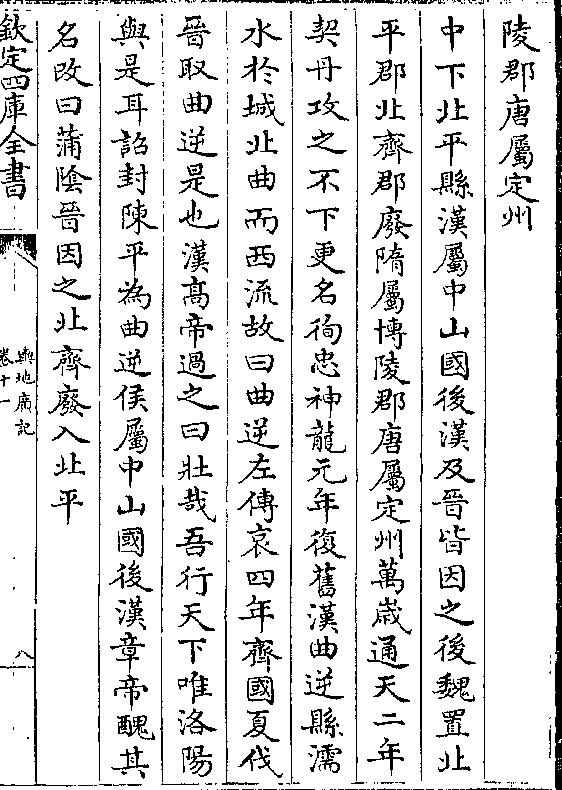 陵郡唐屬定州
中下北平縣漢屬中山國後漢及晉皆因之後魏置北
平郡北齊郡廢隋屬博陵郡唐屬定州萬歲通天二年
契丹攻之不下更名徇忠神龍元年復舊漢曲逆縣濡
水於城北曲而西流故曰曲逆左傳哀四年齊國夏伐
晉取曲逆是也漢高帝過之曰壯哉吾行天下唯洛陽
與是耳詔封陳平為曲逆侯屬中山國後漢章帝醜其
名改曰蒲陰晉因之北齊廢入北平
欽定四庫全書
輿地廣記
卷十一
八